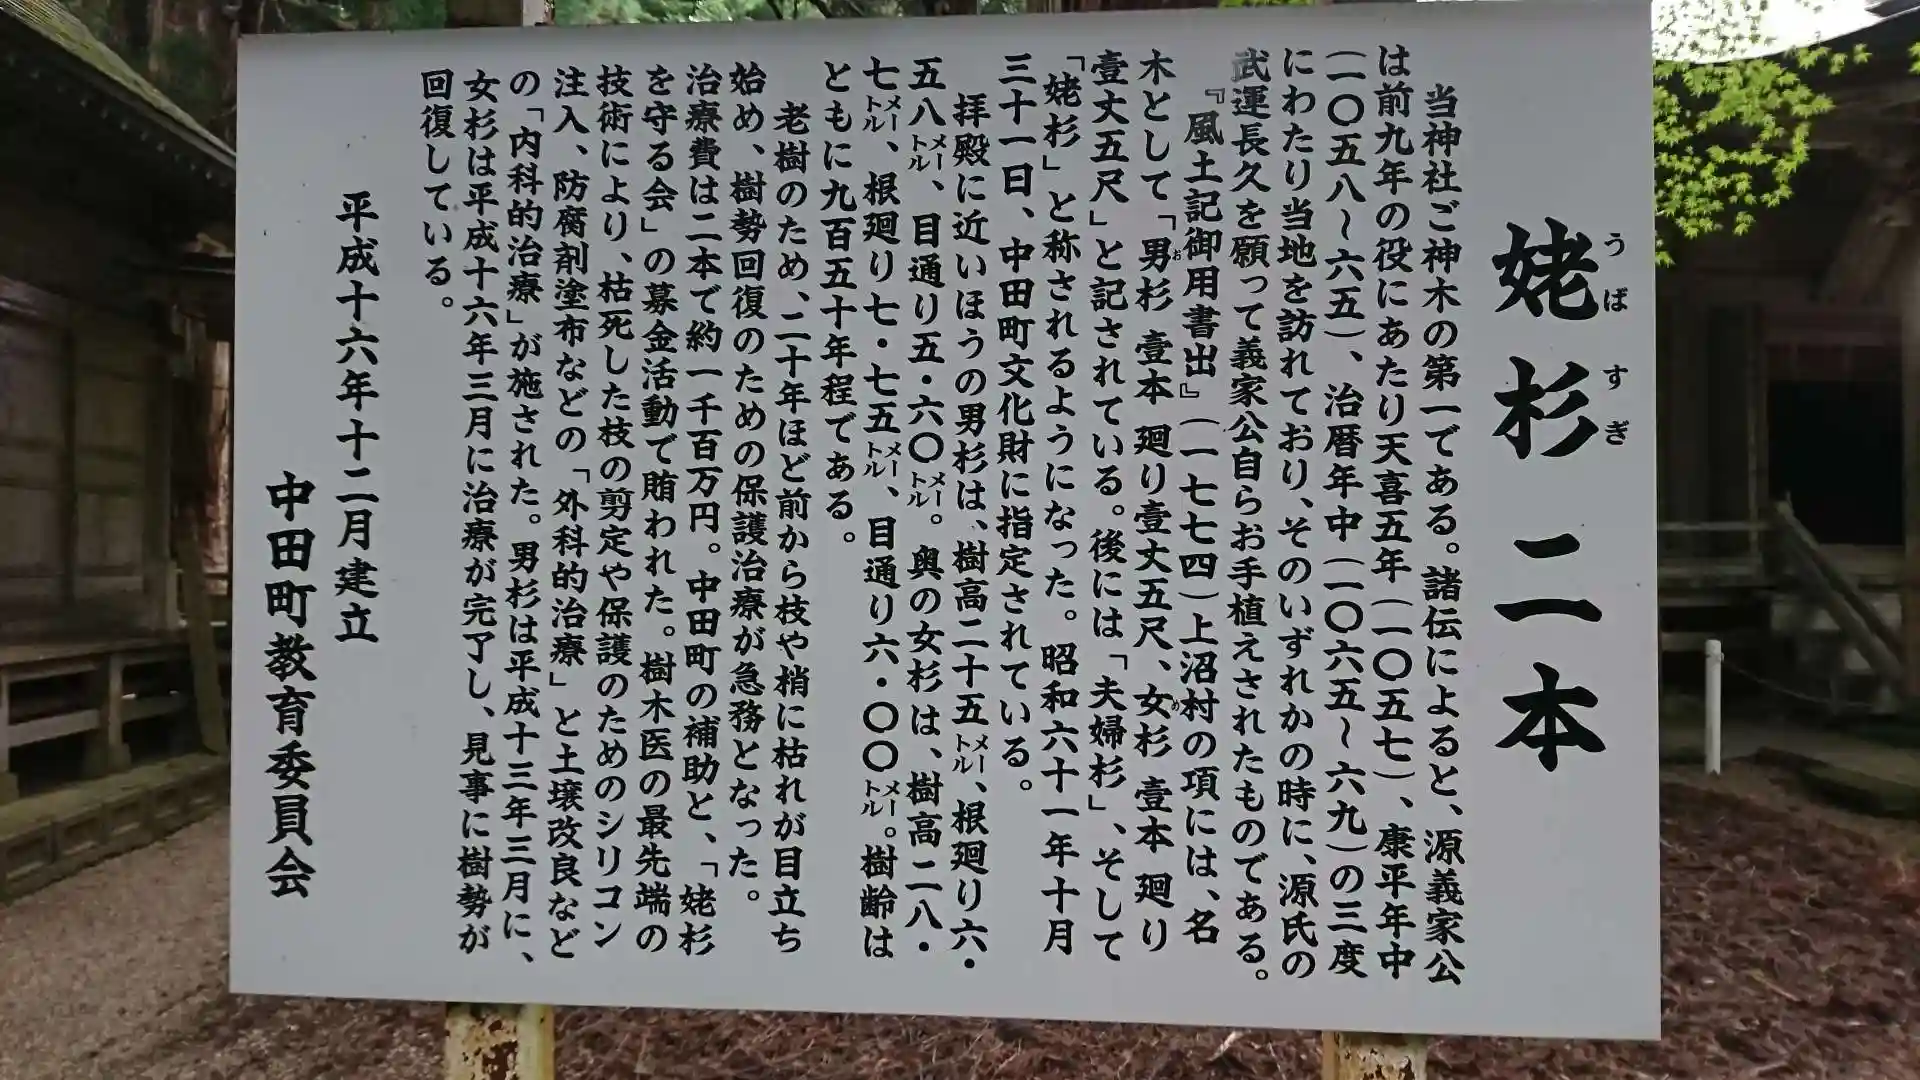 姥杉二本
うばすぎ
当神社ご神木の第一である。諸伝によると、源義家公
は前九年の役にあたり天喜五年(一〇五七)、康平年中
(一〇五八～六五)、治暦年中(一〇六五～六九)の三度
にわたり当地を訪れており、そのいずれかの時に、源氏の
武運長久を願って義家公自らお手植えされたものである。
『風土記御用書出』(一七七四)上沼村の項には、名
木として「男杉 壹本 廻り壹丈五尺、女杉 壹本 廻り
お
め
壹丈五尺」と記されている。後には「夫婦杉」、そして
「姥杉」と称されるようになった。昭和六十一年十月
三十一日、中田町文化財に指定されている。
拝殿に近いほうの男杉は、樹高二十五メートル、根廻り六・
五八メートル、目通り五・六〇メートル。奥の女杉は、樹高二八・
七メートル、根廻り七・七五メートル、目通り六・〇〇メートル。樹齢は
ともに九百五十年程である。
老樹のため、二十年ほど前から枝や梢に枯れが目立ち
始め、樹勢回復のための保護治療が急務となった。
治療費は二本で約一千百万円。中田町の補助と、「姥杉
を守る会」の募金活動で賄われた。樹木医の最先端の
技術により、枯死した枝の剪定や保護のためのシリコン
注入、防腐剤塗布などの「外科的治療」と土壌改良など
の「内科的治療」が施された。男杉は平成十三年三月に、
女杉は平成十六年三月に治療が完了し、見事に樹勢が
回復している。
平成十六年十二月建立
中田町教育委員会